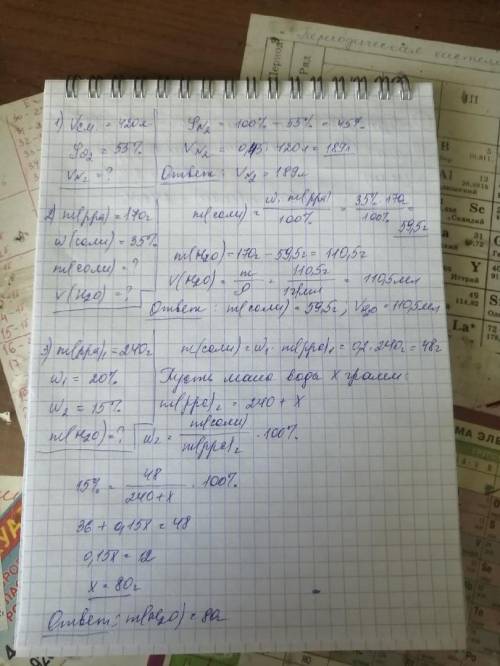 Периодическая систем
Период
Ряд
III
1) Vсм. = 420л
φO2 = 55%
VN2 = ?
φN2 = 100% - 55% = 45%
VN2 = 0,45 · 420л = 189л
Ответ: VN2 = 189л
2) m(рра) = 170г
w(соли) = 35%
m(соли) = ?
V(H2O) = ?
m(соли) = w · m(рра) / 100% = 35% · 170 / 100% =
59,5г
m(H2O) = 170г - 59,5г = 110,5г
V(H2O) = m / ρ = 110,5г / 1г/мл = 110,5мл
Ответ: m(соли) = 59,5г, VH2O = 110,5мл
3) m(рра)1 = 240г
w1 = 20%
w2 = 15%
m(H2O) = ?
m(соли) = w1 · m(рра)1 = 0,2 · 240г = 48г
Пусть масса воды x грамм:
m(рра)2 = 240 + x
w2 = m(соли) / m(рра)2 · 100%
15% = 48 / 240+x · 100%
36 + 0,15x = 48
0,15x = 12
x = 80г
Ответ: m(H2O) = 80г
Al
Sc
Скандий
Y
Иттрий
La*